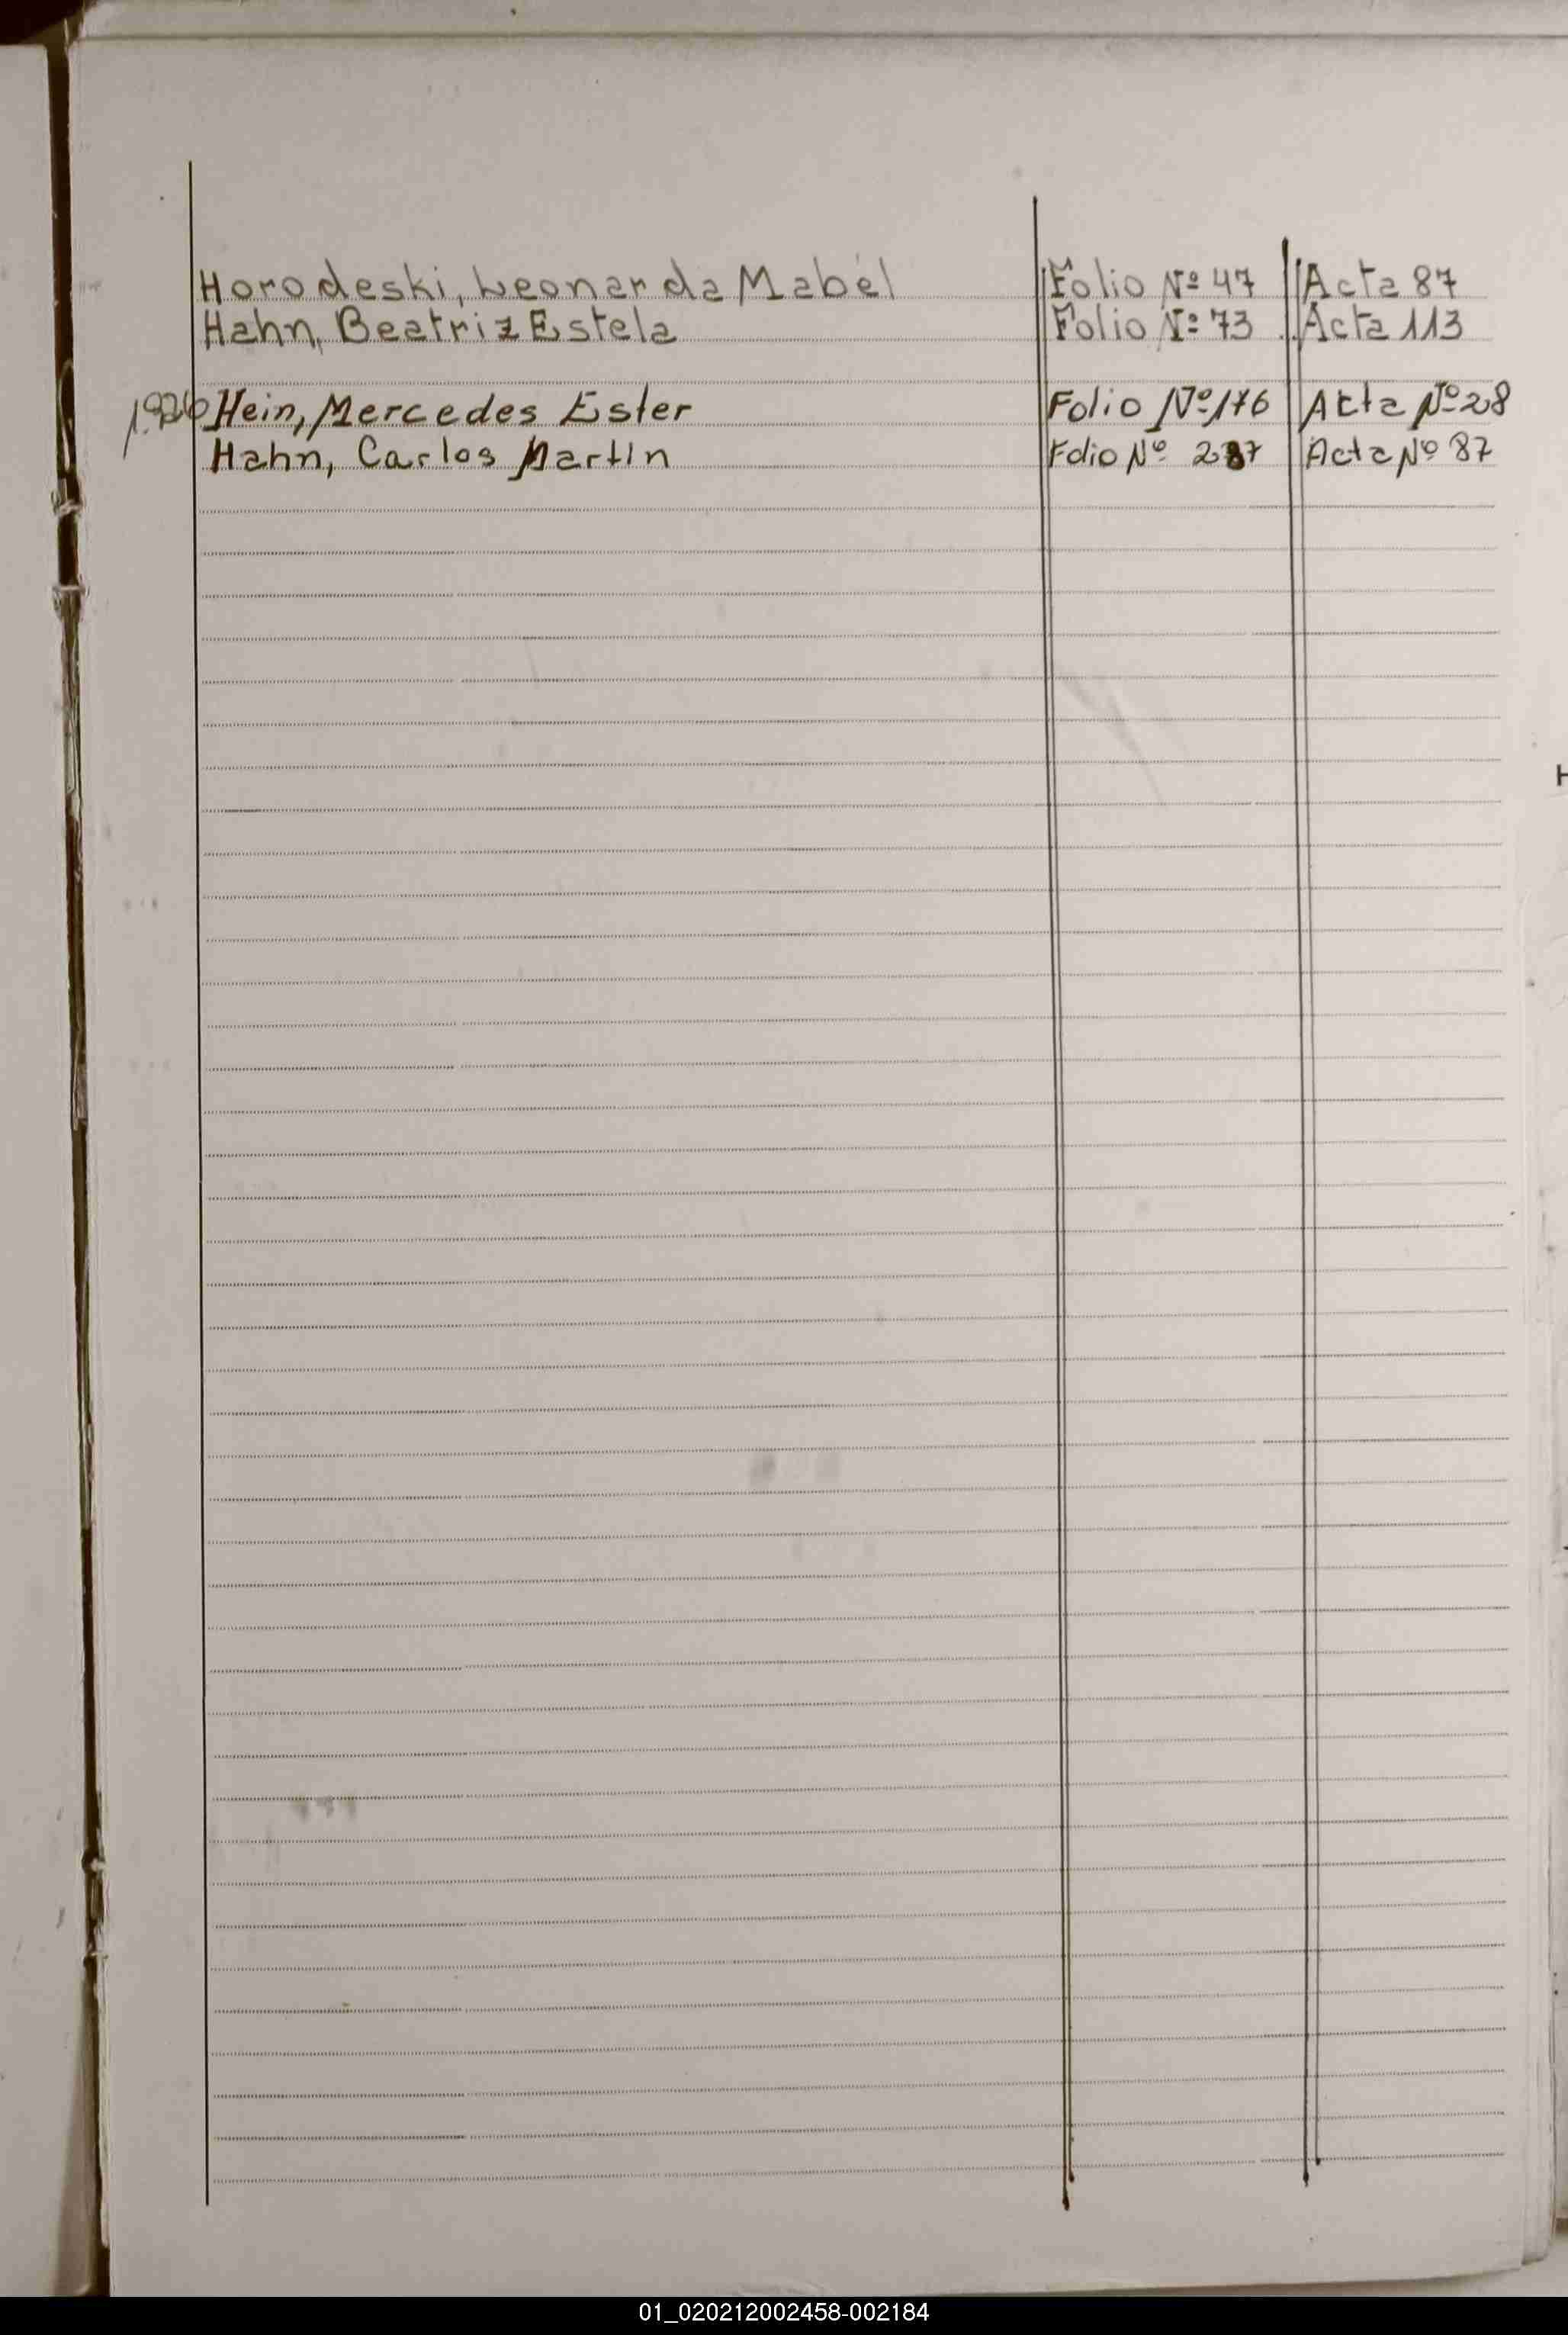 Horodeski, Leonarda Mabel Folio Nº 47 Acta 87
Hahn, Beatriz Estela Folio Nº 73 Acta 113
Hein, Mercedes Ester Folio Nº 176 Acta Nº 28
Hahn, Carlos Martin Folio Nº Acta Nº 87
H
01_020212002458-002184